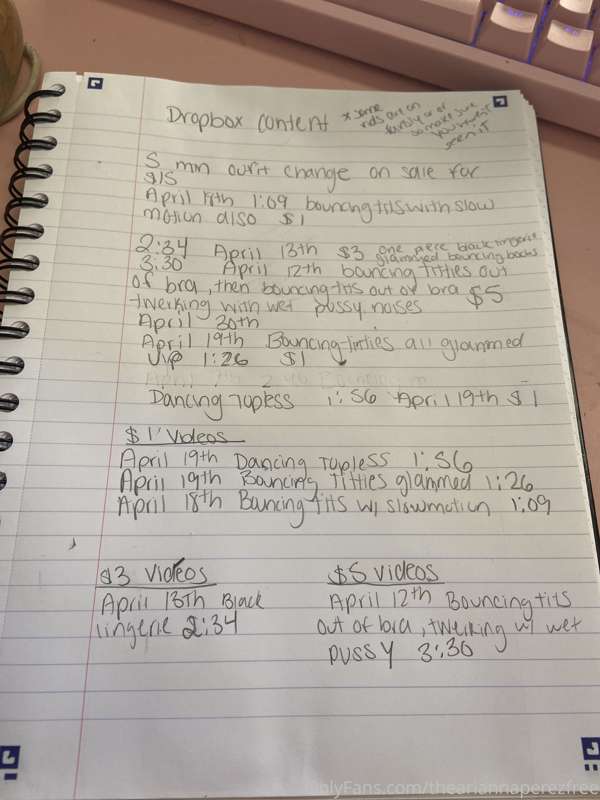 Dropbox content
* some
vids are on
fansly or of
so make sure
you haven't
seen it
5 min outfit change on sale for
$15
April 18th 1:09 bouncing tits with slow
motion also $1
2:34 April 13th $3 one piece black lingerie
glammed bouncing boobs
3:30 April 12th bouncing titties out
of bra, then bouncing tits out of bra $5
twerking with wet pussy noises
April 30th
April 19th Bouncing titties all glammed
up 1:26 $1
Dancing Topless 1:56 April 19th $1
$1 Videos
April 19th Dancing Topless 1:56
April 19th Bouncing Titties glammed 1:26
April 18th Bouncing tits w/ slowmotion 1:09
$3 Videos
April 13th Black
lingerie 2:34
$5 Videos
April 12th Bouncing tits
out of bra, twerking w/ wet
pussy 3:30
OnlyFans.com/theariannaperezfree